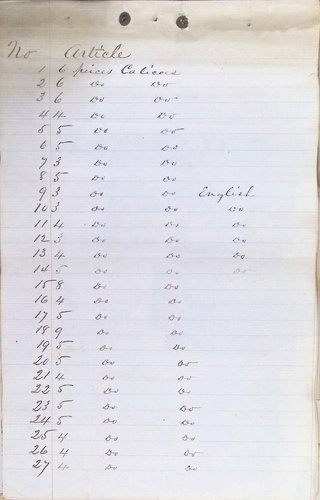 No Article
1 6 pieces Calicoes
2 6 Do Do
3 6 Do Do
4 4 Do Do
5 5 Do Do
6 5 Do Do
7 3 Do Do
8 5 Do Do
9 3 Do Do English
10 3 Do Do Do
11 4 Do Do Do
12 3 Do Do Do
13 4 Do Do Do
14 5 Do Do Do
15 8 Do Do
16 4 Do Do
17 5 Do Do
18 9 Do Do
19 5 Do Do
20 5 Do Do
21 4 Do Do
22 5 Do Do
23 5 Do Do
24 5 Do Do
25 4 Do Do
26 4 Do Do
27 4 Do Do